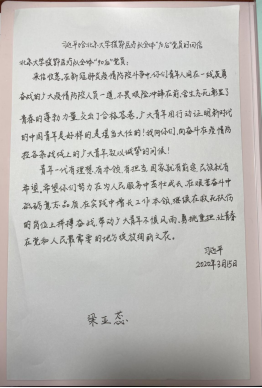 习近平给北京大学援鄂医疗队全体“90后”党员的回信
北京大学援鄂医疗队全体“90后”党员：
来信收悉。在新冠肺炎疫情防控斗争中，你们青年人同在一线英勇
奋战的广大疫情防控人员一道，不畏艰险、冲锋在前、舍生忘死，彰显了
青春的蓬勃力量，交出了合格答卷。广大青年用行动证明，新时代
的中国青年是好样的，是堪当大任的！我向你们、向奋斗在疫情防
控各条战线上的广大青年，致以诚挚的问候！
青年一代有理想、有本领、有担当，国家就有前途，民族就有
希望。希望你们努力在为人民服务中茁壮成长、在艰苦奋斗中
砥砺意志品质、在实践中增长工作本领，继续在救死扶伤
的岗位上拼搏奋战，带动广大青年不惧风雨、勇挑重担，让青春
在党和人民最需要的地方绽放绚丽之花。
习近平
2020年3月15日
梁玉蕊